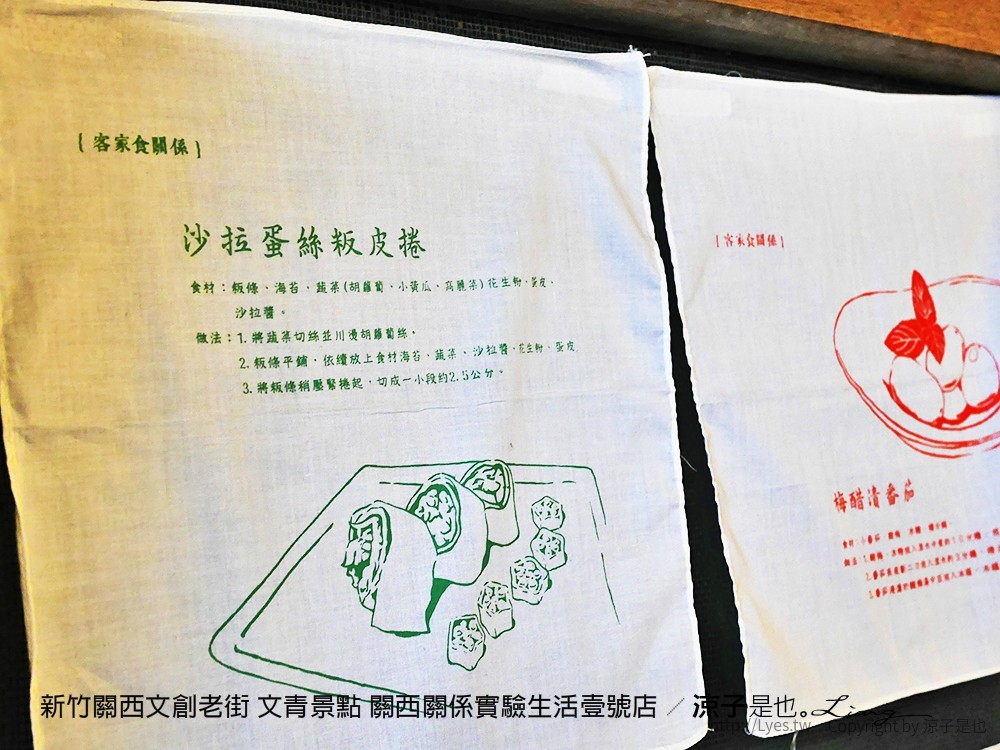 [客家食關係]
沙拉蛋絲粄皮捲
食材:粄條、海苔、蔬菜(胡蘿蔔、小黃瓜、高麗菜)花生粉、蛋皮、
沙拉醬。
做法:1.將蔬菜切絲並川燙胡蘿蔔絲。
2.粄條平鋪,依續放上食材海苔、蔬菜、沙拉醬、花生粉、蛋皮
3.將粄條稍壓緊捲起,切成一小段約2.5公分。
[客家食關係]
梅醋漬番茄
新竹關西文創老街 文青景點 關西關係實驗生活壹號店 / 涼子是也。Ling
http://Lyes.tw Copyright by 涼子是也